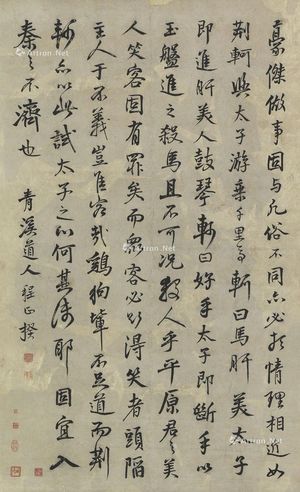 豪傑做事固与凡俗不同亦必于情理相近如
荆軻與太子游乘千里馬軻曰馬肝美太子
即進肝美人鼓琴軻曰好手太子即斷手以
玉盤進之殺馬且不可況殺人乎平原君之美
人笑客固有罪矣而客必欲得笑者頭陷
主人于不義豈佳客哉鷄狗輩不足道而荆
軻亦以此試太子之心何其淺耶固宜入
秦之不濟也 青溪道人程正揆